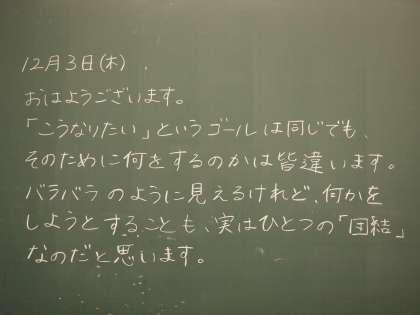 12月3日(木)
おはようございます。
「こうなりたい」というゴールは同じでも、
そのために何をするのかは皆違います。
バラバラのように見えるけれど、何かを
しようとすることも、実はひとつの「団結」
なのだと思います。